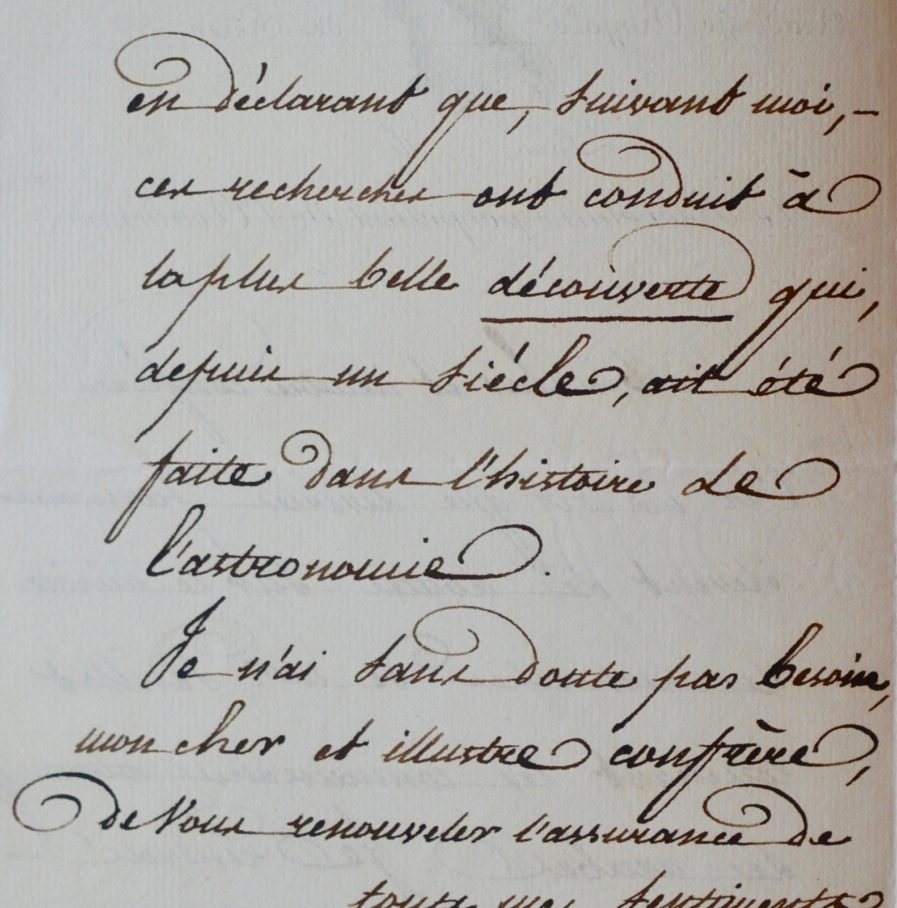 en déclarant que, suivant moi, –
ces recherches ont conduit à
la plus belle découverte qui,
depuis un siécle, ait été
faite dans l'histoire de
l'astronomie.
Je n'ai sans doute pas besoin,
mon cher et illustre confrère,
de Vous renouveler l'assurance de
tous mes sentiments